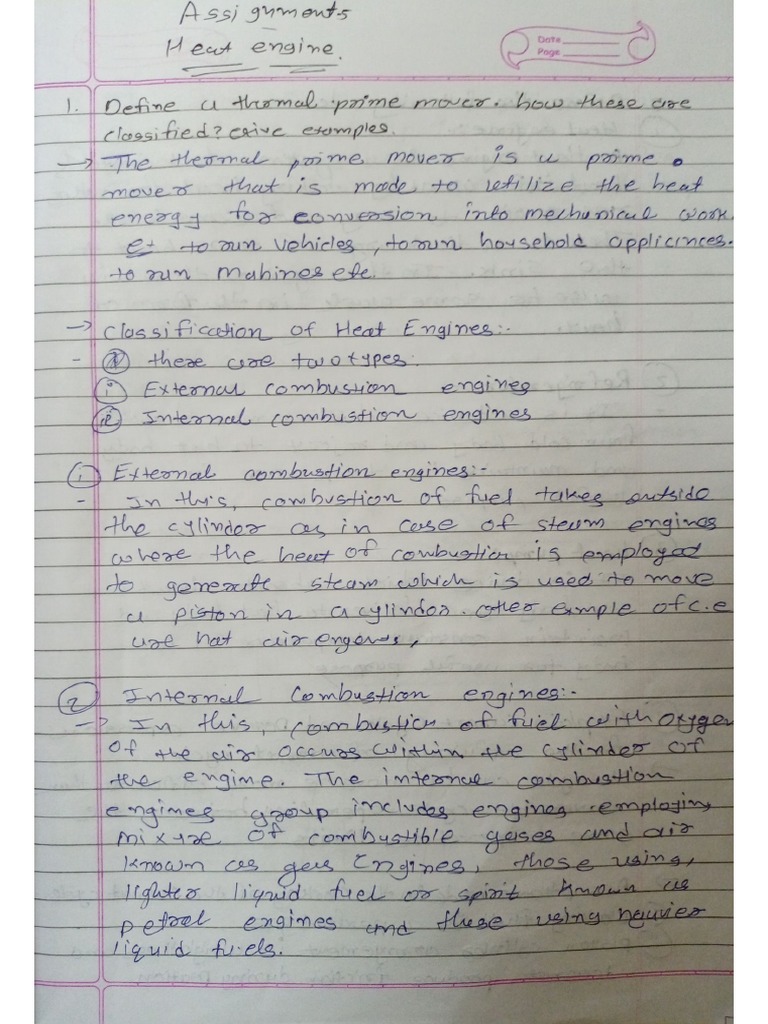 Assignments
Heat engine.
Date
Page
1. Define a thermal prime mover. how these are
classified? Give examples.
→ The thermal prime mover is a prime
mover that is made to utilize the heat
energy for conversion into mechanical work.
to run vehicles, to run household appliances.
to run mahines etc.
→ Classification of Heat Engines:-
- there are two types:
(i) External combustion engines
(ii) Internal combustion engines
(i) External combustion engines:-
- In this, combustion of fuel takes outside
the cylindor as in case of steam engines
where the heat of combustion is employed
to generate steam which is used to move
a piston in a cylindor. other exmple of c.e
are hot air engenes,
(2) Internal Combustion engines:-
→ In this, combustion of fuel with oxygen
of the air occurs within the cylinder of
the engine. The internal combustion
engines group includes engines employing
mixure of combustible gases and air
known as gas Engines, those using,
lighter liquid fuel or spirit known as
petrol engines and those using heavier
liquid fuels.